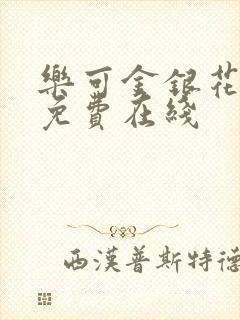 樂可金銀花
免費在綫
西漢普斯特德